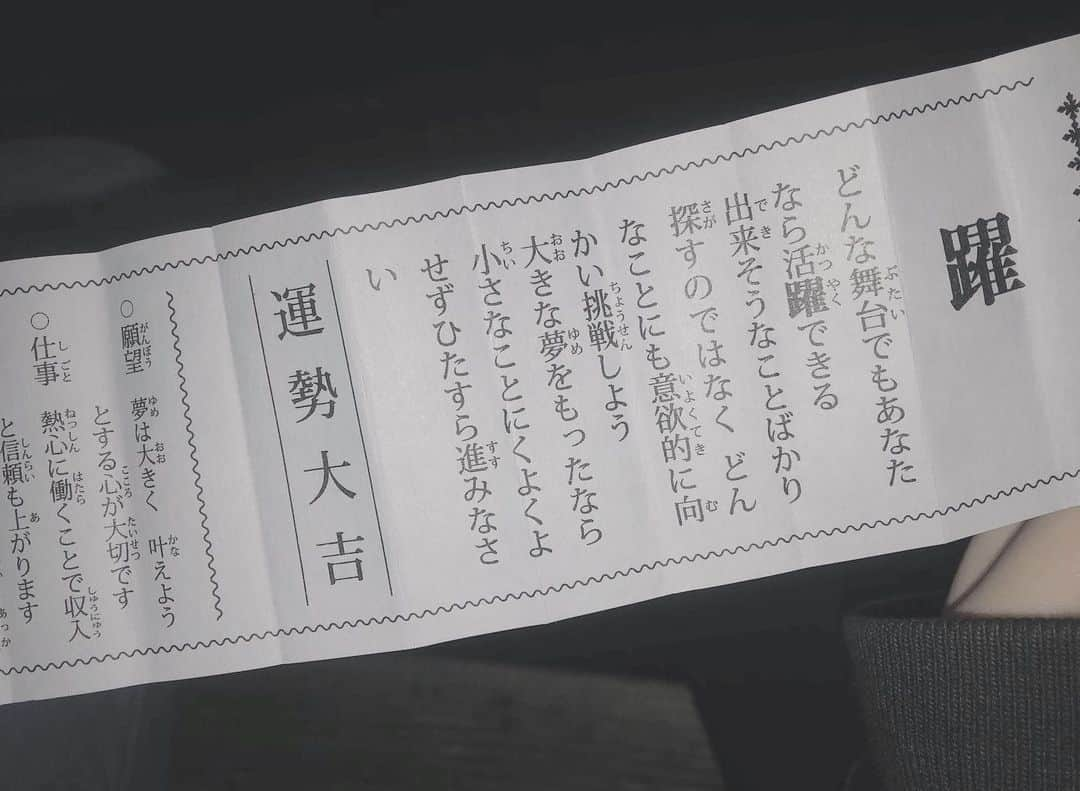 躍
どんな舞台でもあなた
なら活躍できる
出来そうなことばかり
探すのではなく どん
なことにも意欲的に向
かい挑戦しよう
大きな夢をもったなら
小さなことにくよくよ
せずひたすら進みなさ
い
運勢大吉
○願望 夢は大きく 叶えよう
とする心が大切です
○仕事 熱心に働くことで収入
と信頼も上がります